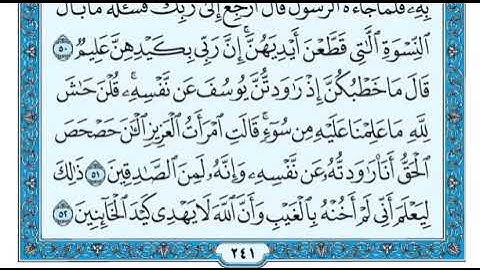 بِهِۦ فَلَمَّا جَآءَهُ ٱلرَّسُولُ قَالَ ٱرْجِعْ إِلَىٰ رَبِّكَ فَسْـَٔلْهُ مَا بَالُ
ٱلنِّسْوَةِ ٱلَّٰتِى قَطَّعْنَ أَيْدِيَهُنَّ ۚ إِنَّ رَبِّى بِكَيْدِهِنَّ عَلِيمٌ ٥٠
قَالَ مَا خَطْبُكُنَّ إِذْ رَٰوَدتُّنَّ يُوسُفَ عَن نَّفْسِهِۦ ۚ قُلْنَ حَٰشَ
لِلَّهِ مَا عَلِمْنَا عَلَيْهِ مِن سُوٓءٍ ۚ قَالَتِ ٱمْرَأَتُ ٱلْعَزِيزِ ٱلْـَٰٔنَ حَصْحَصَ
ٱلْحَقُّ أَنَا۠ رَٰوَدتُّهُۥ عَن نَّفْسِهِۦ وَإِنَّهُۥ لَمِنَ ٱلصَّٰدِقِينَ ٥١ ذَٰلِكَ
لِيَعْلَمَ أَنِّى لَمْ أَخُنْهُ بِٱلْغَيْبِ وَأَنَّ ٱللَّهَ لَا يَهْدِى كَيْدَ ٱلْخَآئِنِينَ ٥٢
٢٤١